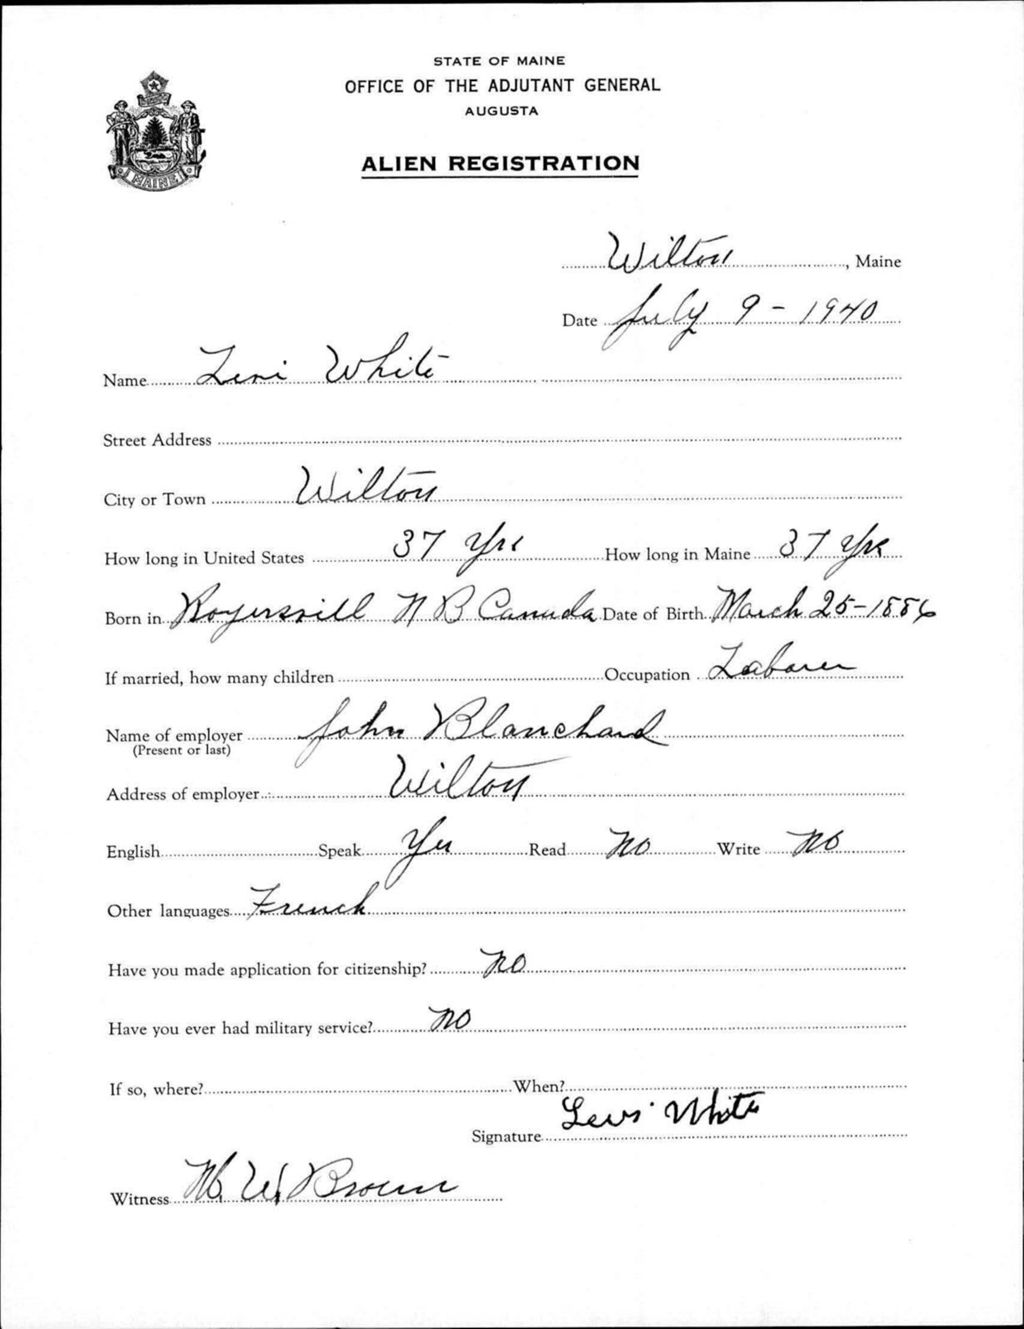 STATE OF MAINE
OFFICE OF THE ADJUTANT GENERAL
AUGUSTA
MAINE
ALIEN REGISTRATION
Wilton, Maine
Date July 9 - 1940
Name Levi White
Street Address
City or Town Wilton
How long in United States 37 Yrs How long in Maine 37 Yrs
Born in Rogersvill N B Canada Date of Birth March 25-1886
If married, how many children Occupation Laborer
Name of employer John Blanchard
(Present or last)
Address of employer Wilton
English Speak Yes Read No Write No
Other languages French
Have you made application for citizenship? No
Have you ever had military service? No
If so, where? When?
Signature Levi White
Witness M. W. Brown